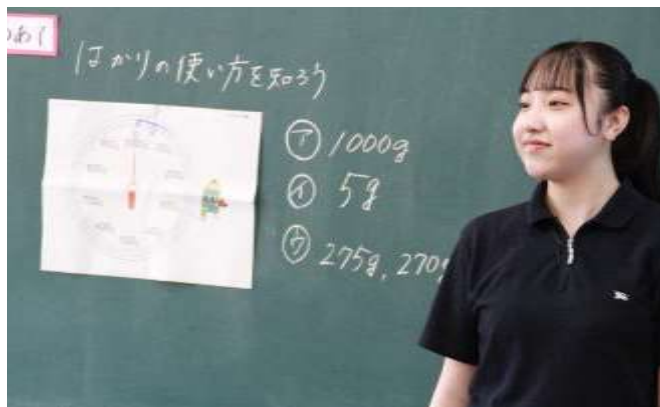 めあて
はかりの使い方を知ろう
㋐ 1000g
㋑ 5g
㋒ 275g, 270g